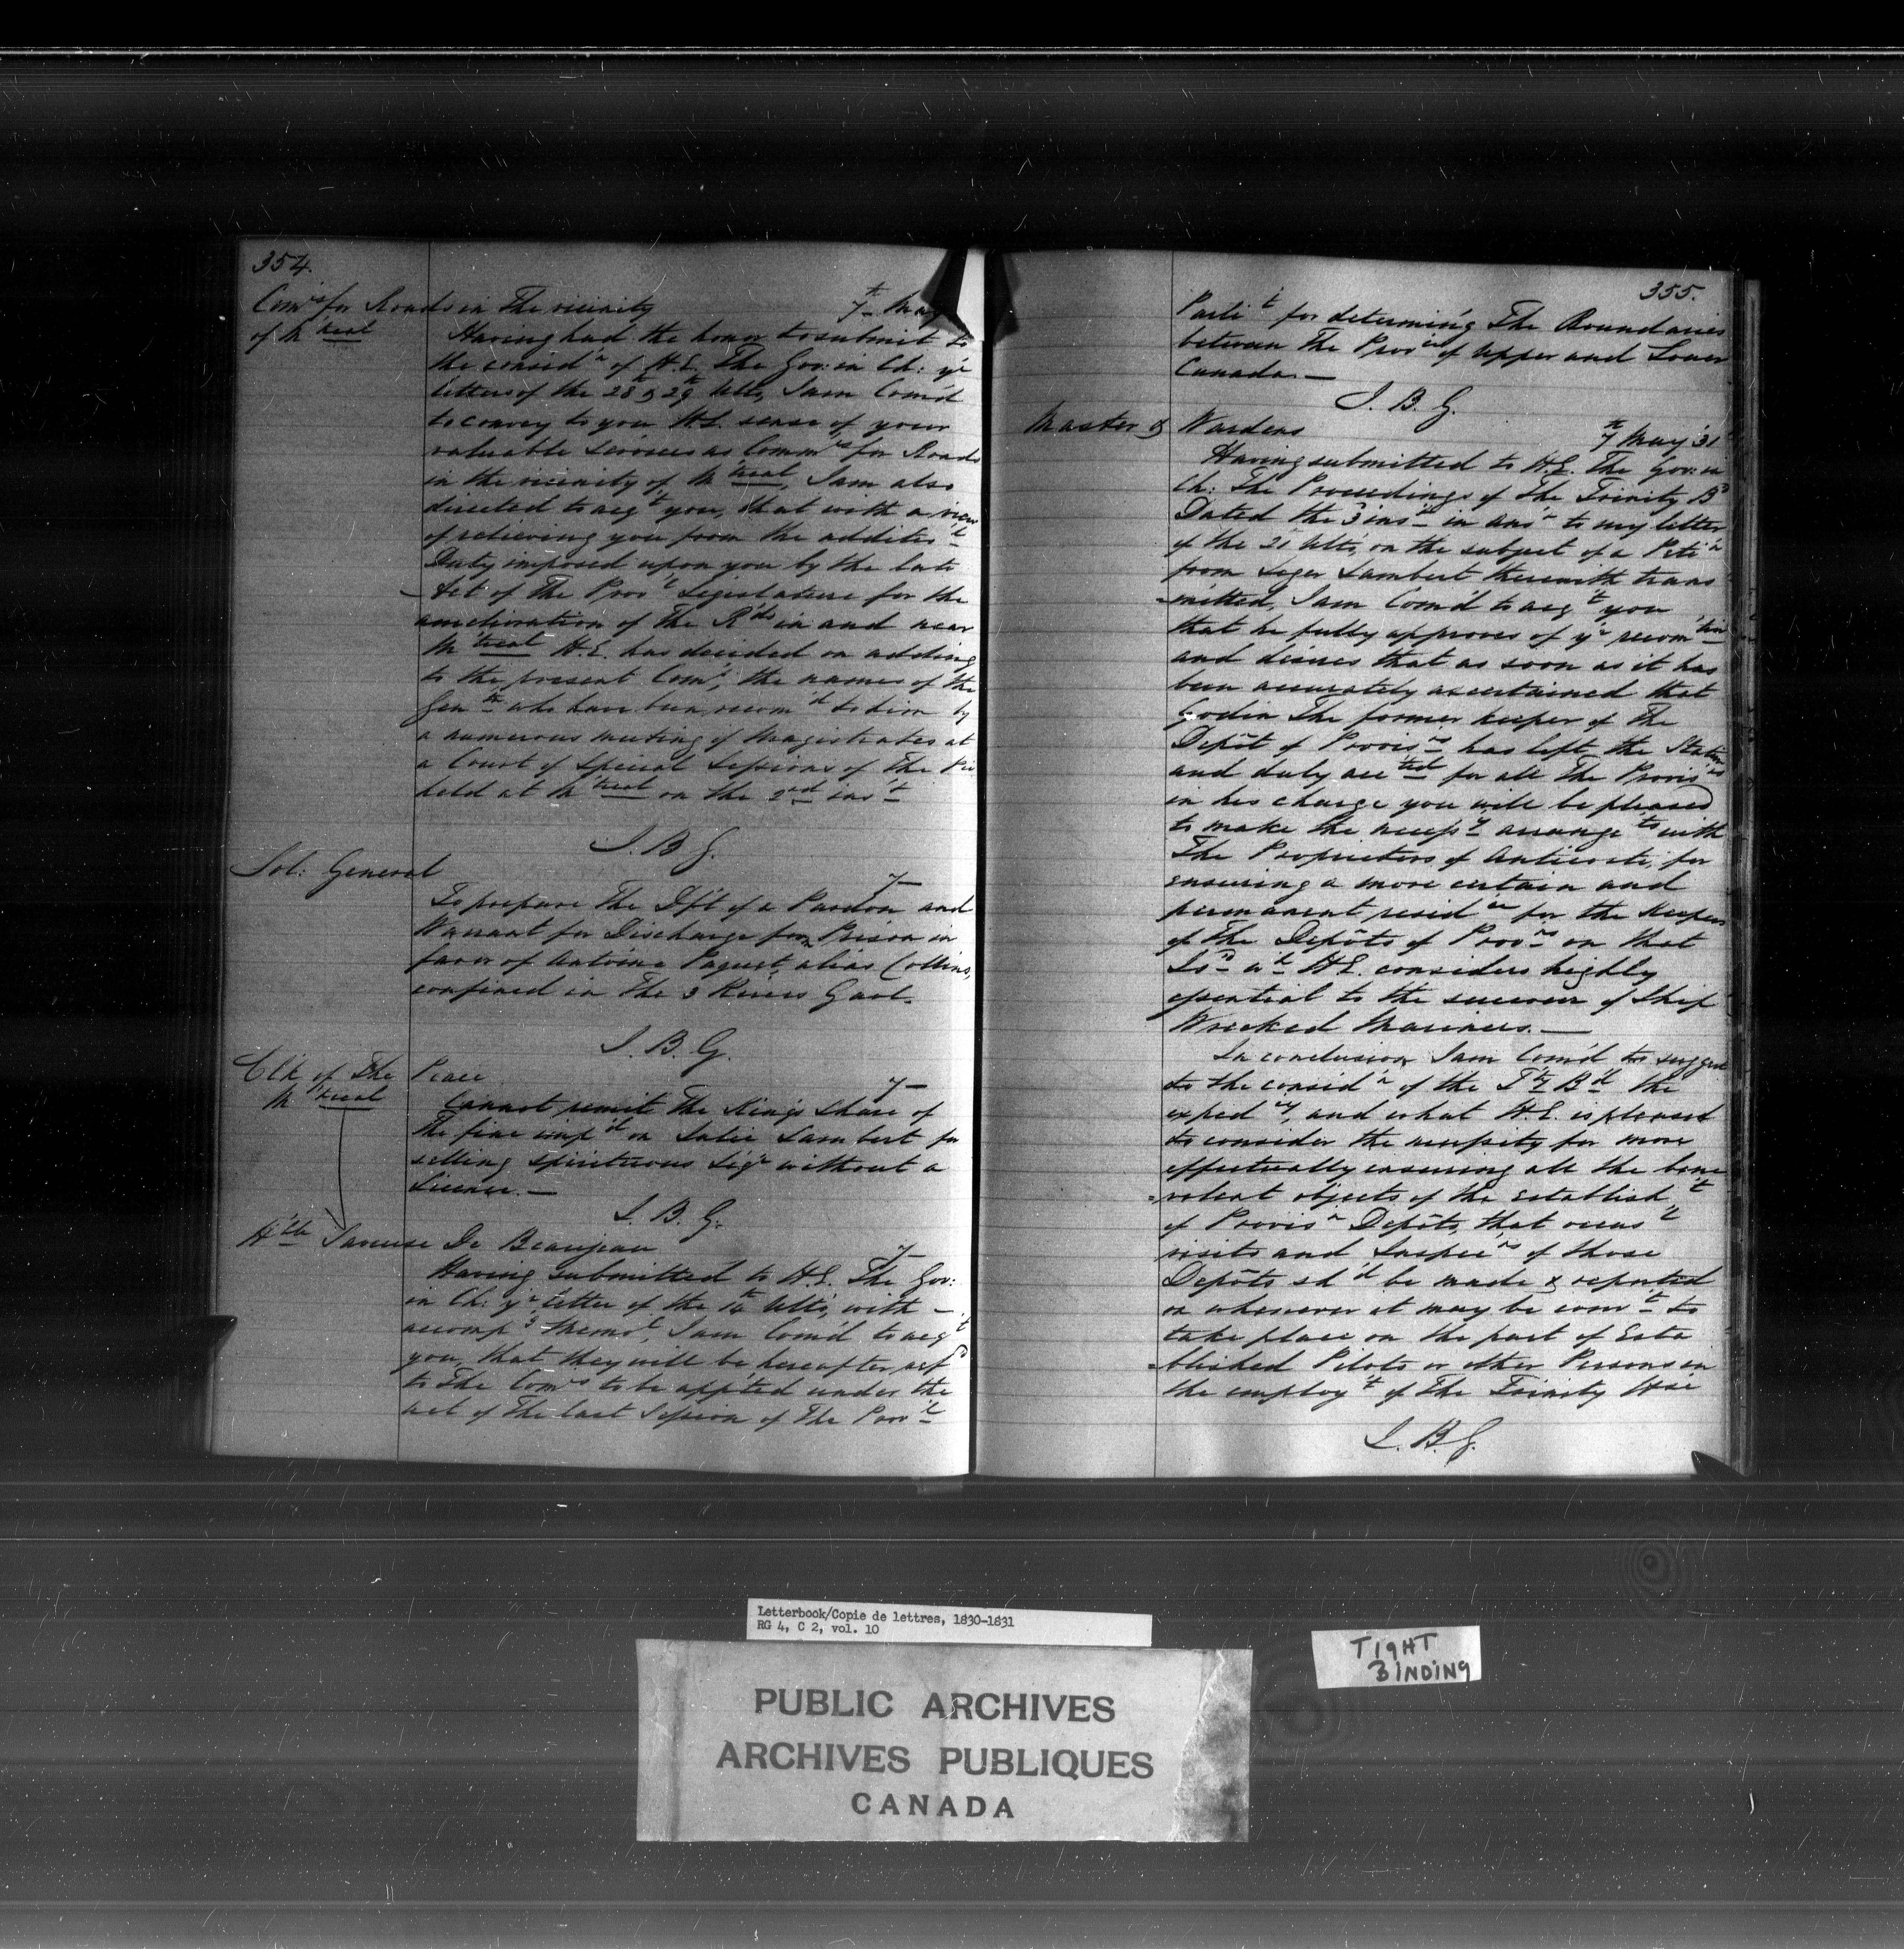 354.
Comrs for Roads in The vicinity 7th May
of Mtreal Having had the honor to submit to
the considn of H.E. The Gov: in Ch: yr
letters of the 28 & 29th Ulto, I am Com'd
to convey to you H.E. sense of your
valuable services as Commrs for Roads
in the vicinity of Mtreal, I am also
directed to acqt you, that with a view
of relieving you from the additiol
Duty imposed upon you by the late
Act of The Provl Legislature for the
amelioration of The Rds in and near
Mtreal H.E. has decided on adding
to the present Comrs, the names of the
Genth who have been recomd to him by
a numerous meeting of Magistrates at
a Court of Special Sessions of The
held at Mtreal on the 2nd inst
J. B G.
Sol: General 7–
To prepare The Dft of a Pardon and
Warrant for Discharge from Prison in
favor of Antoine Paquet, alias Collins,
confined in The 3 Rivers Gaol.
J. B. G.
Clk of The Peace 7–
Mtreal Cannot remit The King's Share of
The fine impd on Julie Lambert for
selling spirituous Liqr without a
License.—
J. B. G.
Hble Saveuse De Beaujeau 7–
Having submitted to H.E. The Gov:
in Ch: yr letter of the 14th Ulto, with –
accompg Meml, I am Com'd to acqt
you, that they will be, hereafter, refd
to The Comrs to be app'ted under the
act of The last Session of The Provl
355.
Parlit for determin'g The Boundaries
between The Provces of Upper and Lower
Canada.—
J. B. G.
Master & Wardens 7th May '31
Having submitted to H.E. The Gov: in
Ch: The Proceedings of The Trinity Bd
Dated the 3 inst in ansr to my letter
of the 21 Ulto, on the subject of a Petin
from Leger Lambert therewith trans
=mitted, I am Com'd to acqt you
that he fully approves of yr recomtion
and desires that as soon as it has
been accurately ascertained that
Godin The former keeper of The
Depôt of Provisns has left the Station
and duly accted for all The Provisns
in his charge you will be pleased
to make the necessy arrangets with
The Proprietors of Anticosti, for
ensuring a more certain and
permanent residce for the Keeper
of the Depôts of Provns on that
Isd wh H.E. considers highly
essential to the succour of Ship
Wrecked Mariners.—
In conclusion I am Com'd to suggest
to the considn of the Tty Bd the
expedcy, and what H.E. is pleased
to consider the necessity for more
effectually ensuring all the bene
=volent objects of the establisht
of Provisn Depôts, that occasl
visits and Inspecns of those
Depôts shd be made & reported
on whenever it may be convt to
take place on the part of Esta
=blished Pilots or other Persons in
the employt of The Trinity Hse
J. B. G.
Letterbook/Copie de lettres, 1830-1831
RG 4, C 2, vol. 10
TIGHT
BINDING
PUBLIC ARCHIVES
ARCHIVES PUBLIQUES
CANADA